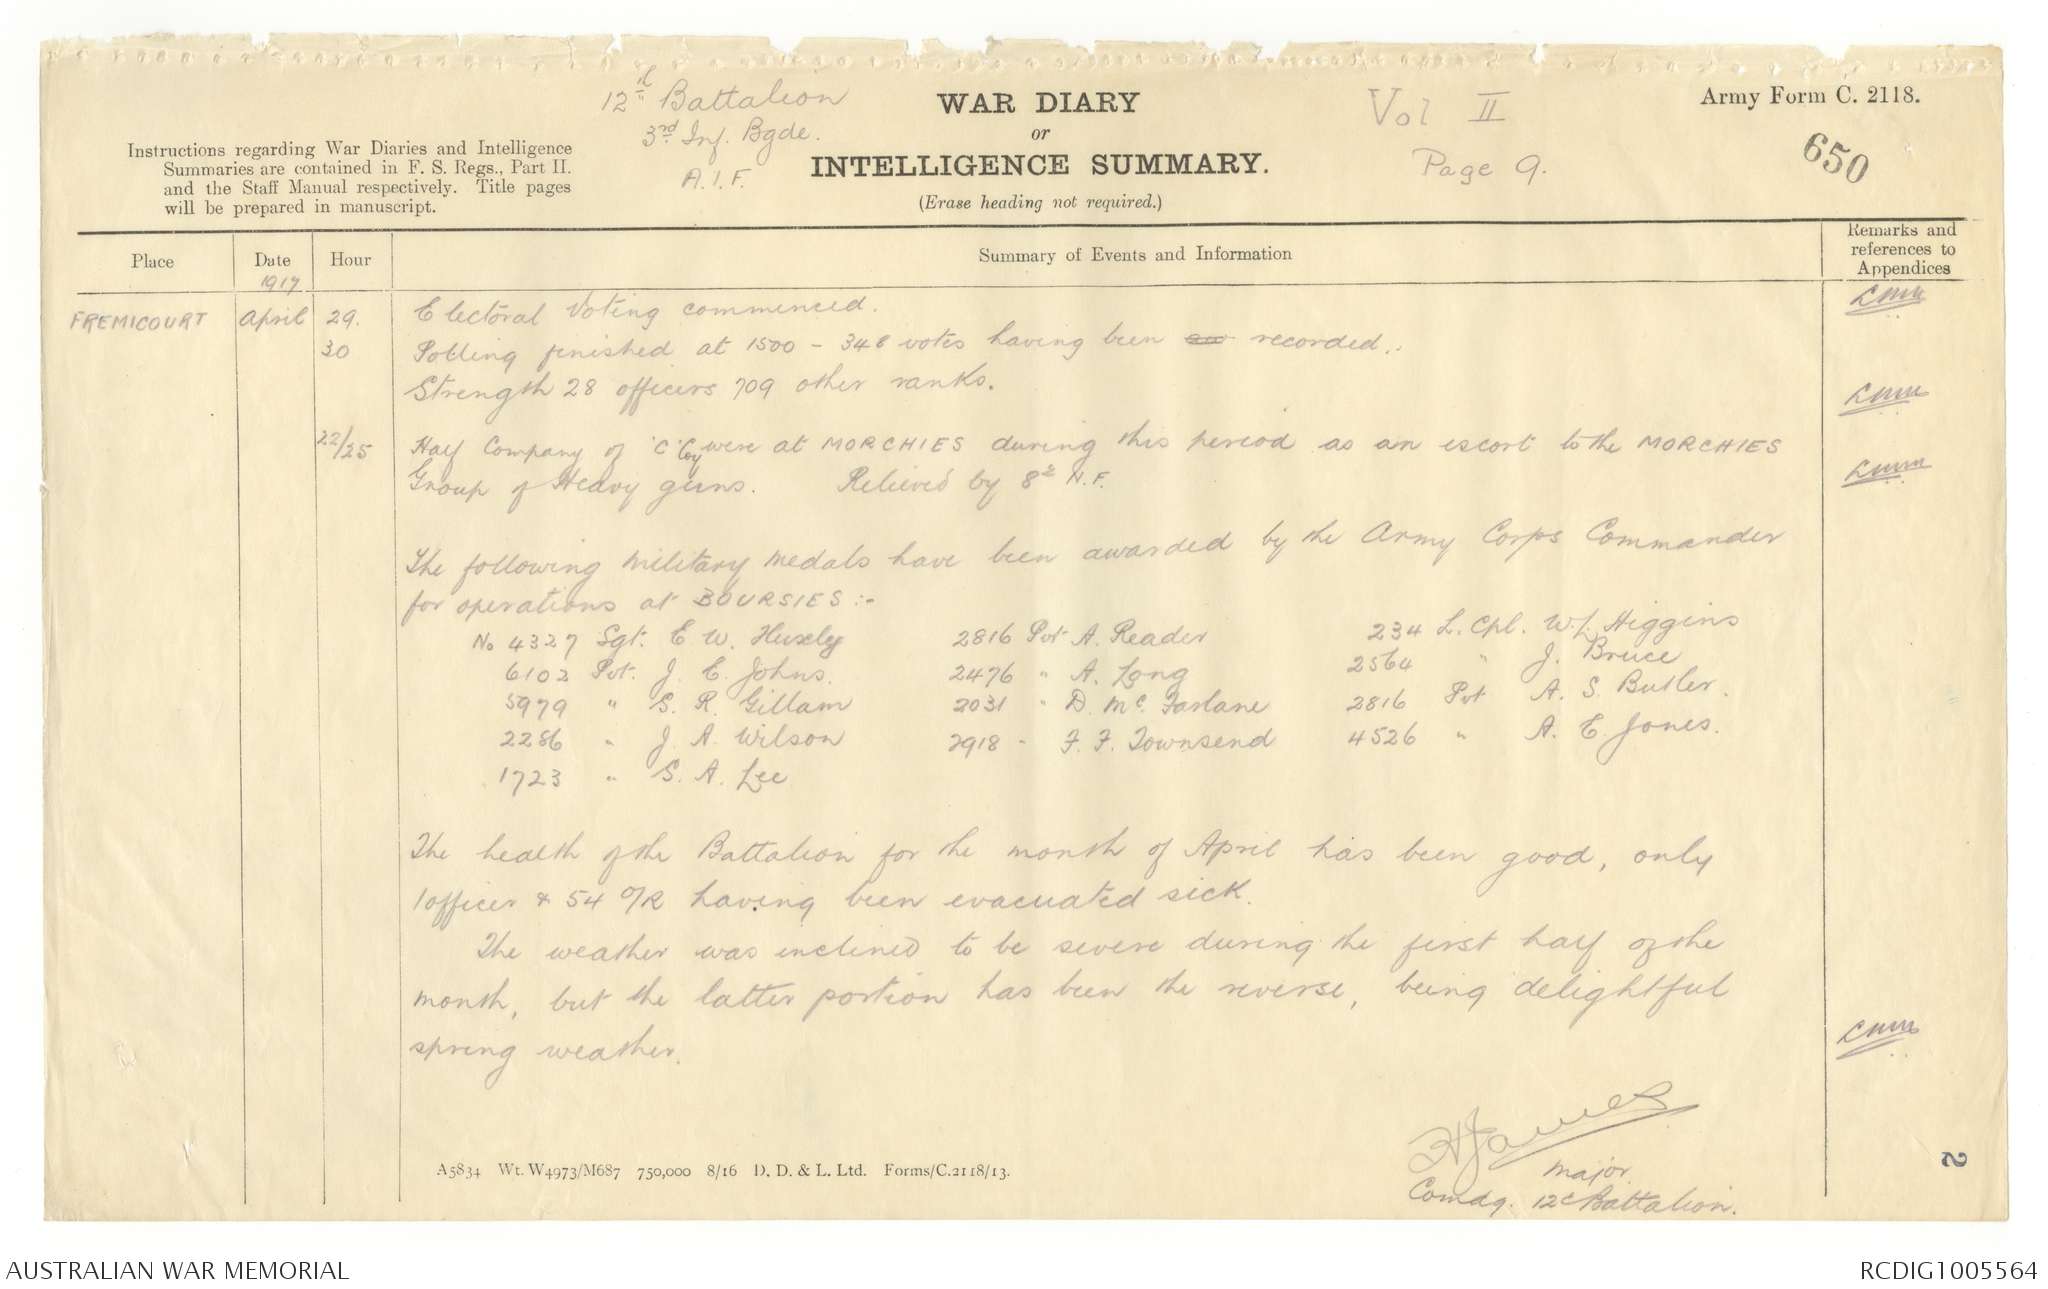 12th Battalion
3rd Inf. Bgde.
A.I.F.
WAR DIARY
or
INTELLIGENCE SUMMARY.
(Erase heading not required.)
Vol II
Page 9.
Army Form C. 2118.
650
Instructions regarding War Diaries and Intelligence
Summaries are contained in F. S. Regs., Part II.
and the Staff Manual respectively. Title pages
will be prepared in manuscript.
Place Date Hour Summary of Events and Information Remarks and
references to
Appendices
1917
FREMICOURT April 29. Electoral Voting commenced.
30 Polling finished at 1500 – 348 votes having been recorded.
Strength 28 officers 709 other ranks.
22/25 Half Company of 'C' Coy were at MORCHIES during this period as an escort to the MORCHIES
Group of Heavy guns. Relieved by 8th N.F.
The following Military Medals have been awarded by the Army Corps Commander
for operations at BOURSIES :-
No 4327 Sgt. E. W. Huxley 2816 Pvt A. Reader 234 L. Cpl. W. J. Higgins
6102 Pvt. J. E. Johns. 2476 " A. Long 2564 " J. Bruce
5979 " S. R. Gillam 2031 " D. McFarlane 2816 Pvt A. S. Butler.
2286 " J. A. Wilson 2918 " F. F. Townsend 4526 " A. E. Jones.
1723 " S. A. Lee
The health of the Battalion for the month of April has been good, only
1 officer & 54 O/R having been evacuated sick.
The weather was inclined to be severe during the first half of the
month, but the latter portion has been the reverse, being delightful
spring weather.
Major.
Comdg. 12th Battalion.
A5834 Wt. W4973/M687 750,000 8/16 D. D. & L. Ltd. Forms/C.2118/13.
2
AUSTRALIAN WAR MEMORIAL
RCDIG1005564